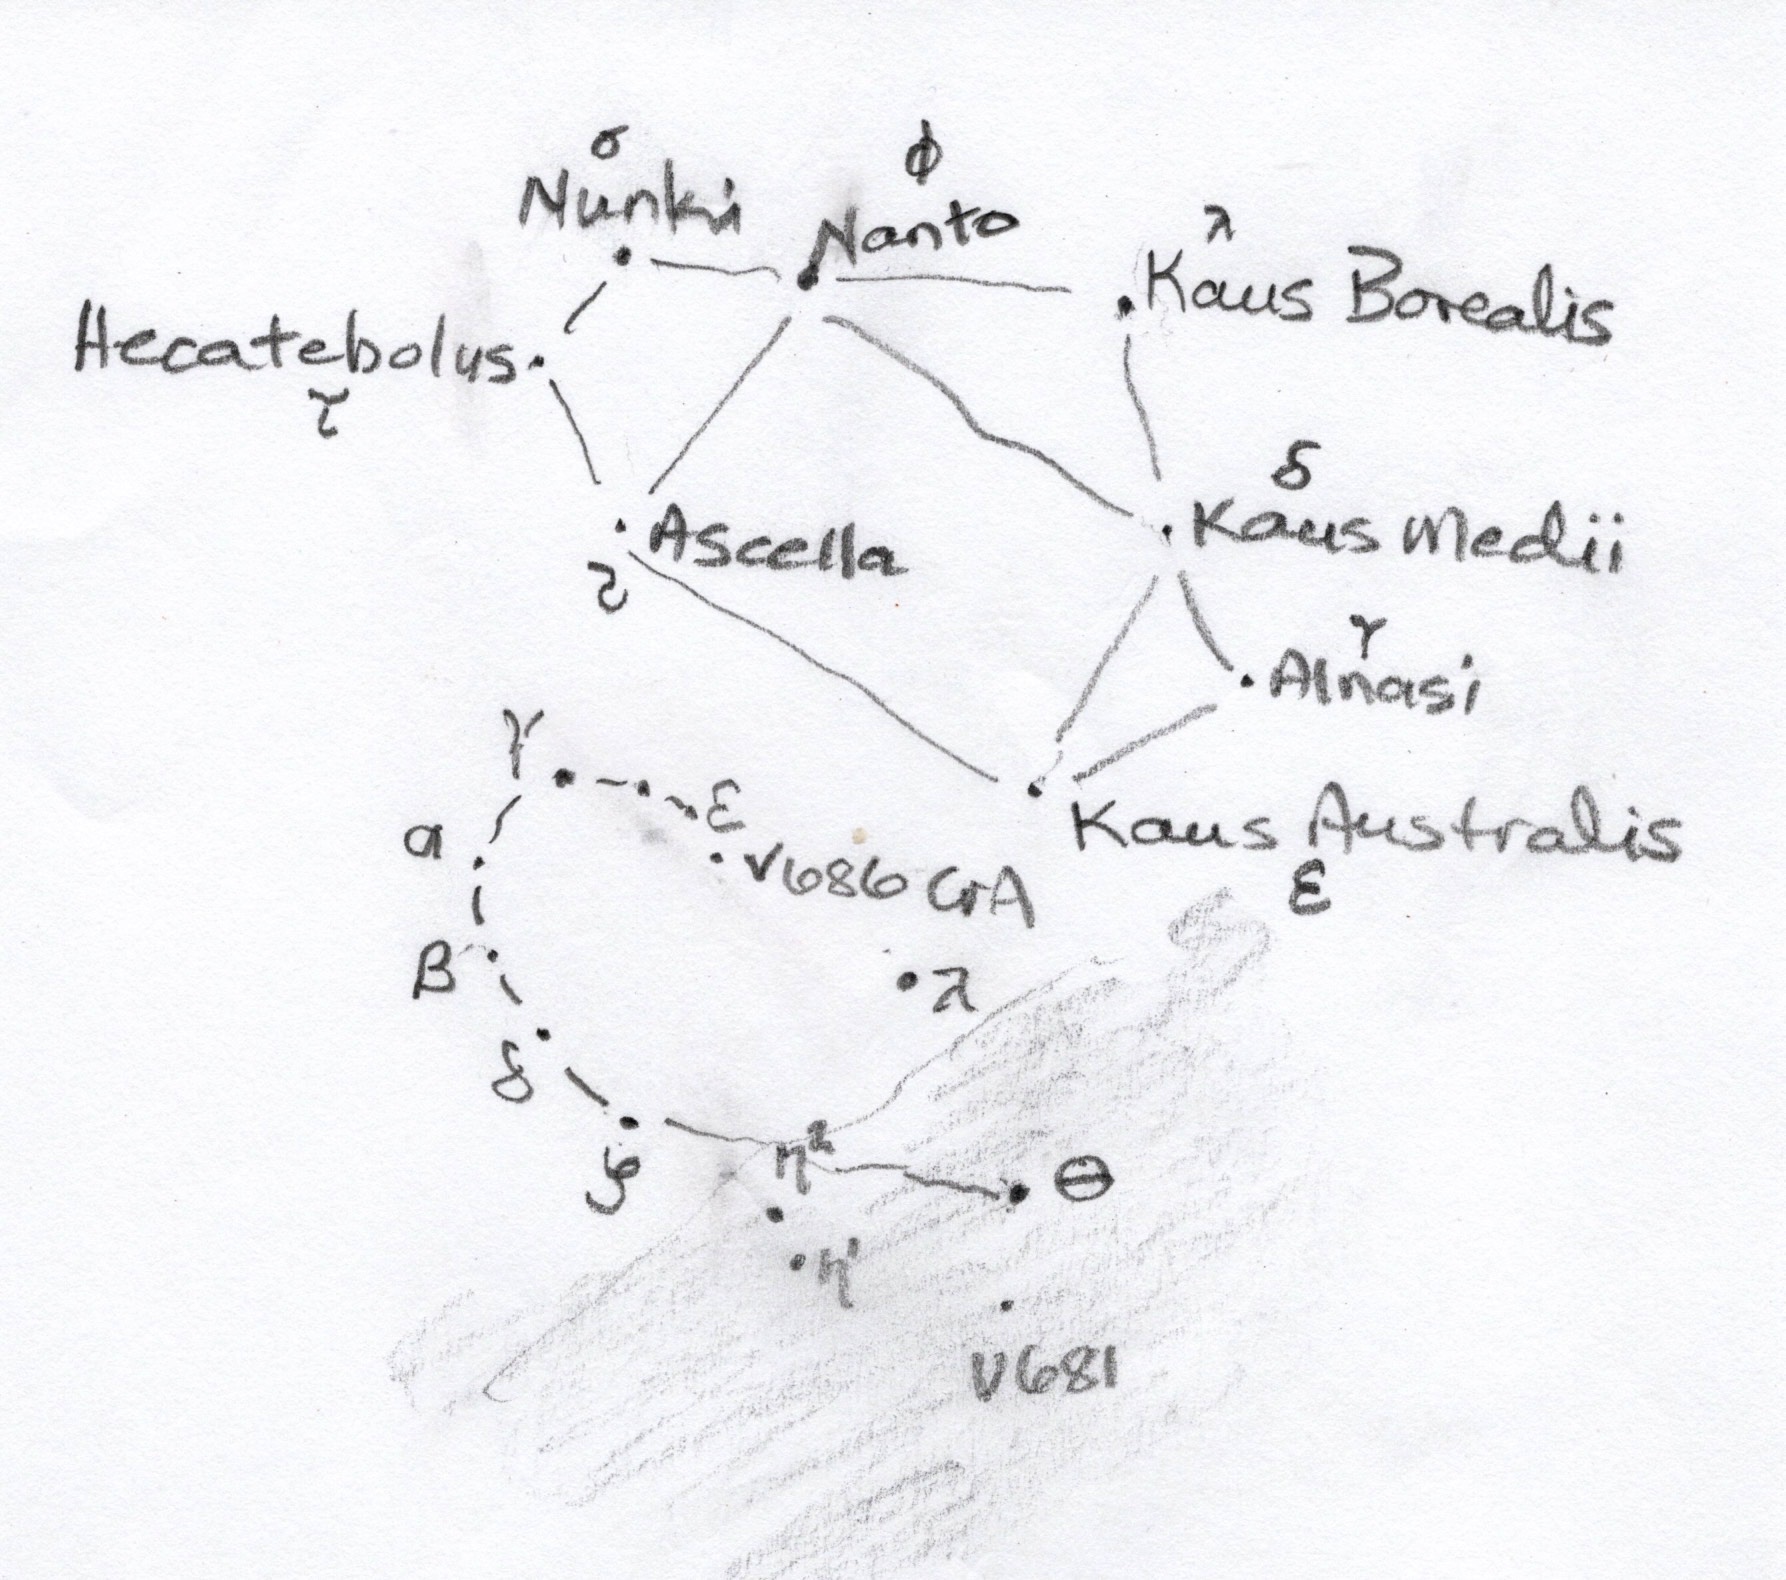 σ
Nunki
ϕ
Nanto
λ
Kaus Borealis
Hecatebolus
τ
δ
Kaus Medii
Ascella
ζ
γ
Alnasi
Kaus Australis
ε
γ
ε
α
V686 CrA
β
λ
δ
ζ
η²
θ
η¹
V681